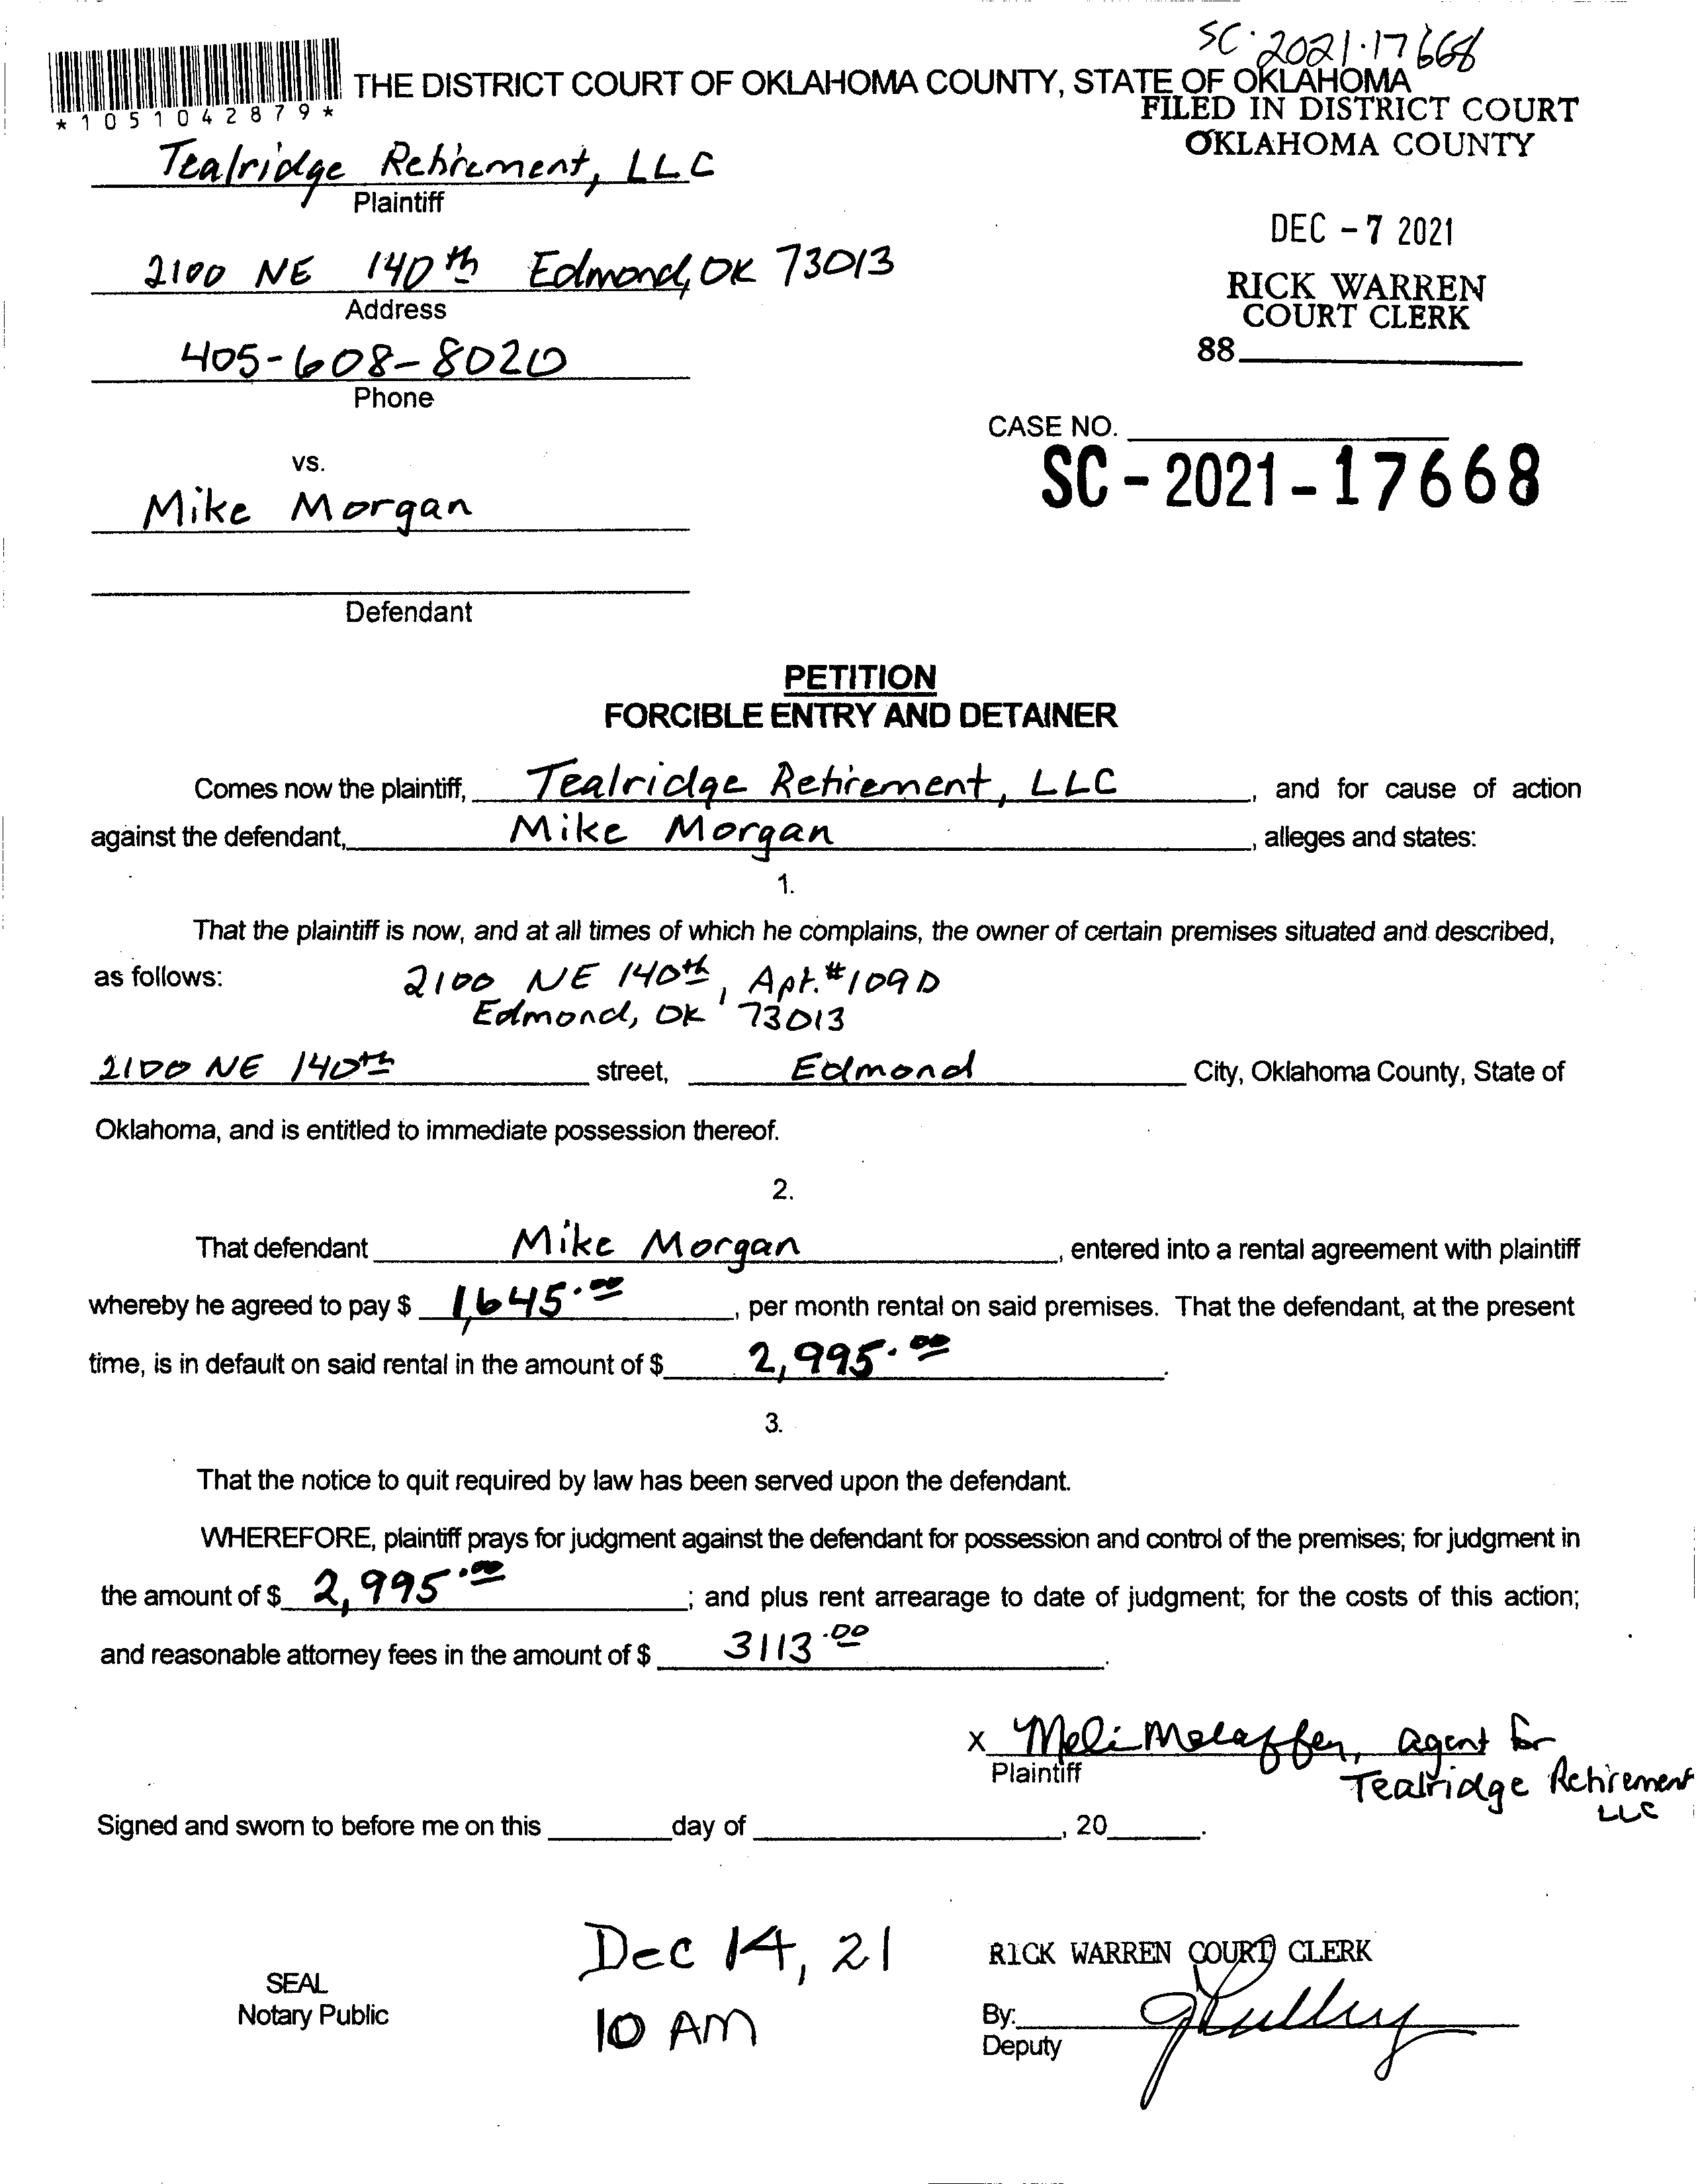 SC·2021·17668
THE DISTRICT COURT OF OKLAHOMA COUNTY, STATE OF OKLAHOMA
*1051042879*
FILED IN DISTRICT COURT
OKLAHOMA COUNTY
Tealridge Retirement, LLC
Plaintiff
DEC -7 2021
2100 NE 140th Edmond, OK 73013
Address
RICK WARREN
COURT CLERK
405-608-8020
Phone
88
CASE NO.
SC-2021-17668
vs.
Mike Morgan
Defendant
PETITION
FORCIBLE ENTRY AND DETAINER
Comes now the plaintiff, Tealridge Retirement, LLC, and for cause of action
against the defendant, Mike Morgan, alleges and states:
1.
That the plaintiff is now, and at all times of which he complains, the owner of certain premises situated and described,
as follows: 2100 NE 140th, Apt. #109D
Edmond, OK 73013
2100 NE 140th street, Edmond City, Oklahoma County, State of
Oklahoma, and is entitled to immediate possession thereof.
2.
That defendant Mike Morgan, entered into a rental agreement with plaintiff
whereby he agreed to pay $ 1,645.00, per month rental on said premises. That the defendant, at the present
time, is in default on said rental in the amount of $ 2,995.00.
3.
That the notice to quit required by law has been served upon the defendant.
WHEREFORE, plaintiff prays for judgment against the defendant for possession and control of the premises; for judgment in
the amount of $ 2,995.00; and plus rent arrearage to date of judgment; for the costs of this action;
and reasonable attorney fees in the amount of $ 3113.00.
X agent for
Plaintiff
Tealridge Retirement
LLC
Signed and sworn to before me on this day of , 20 .
Dec 14, 21
RICK WARREN COURT CLERK
SEAL
Notary Public
10 AM
By:
Deputy